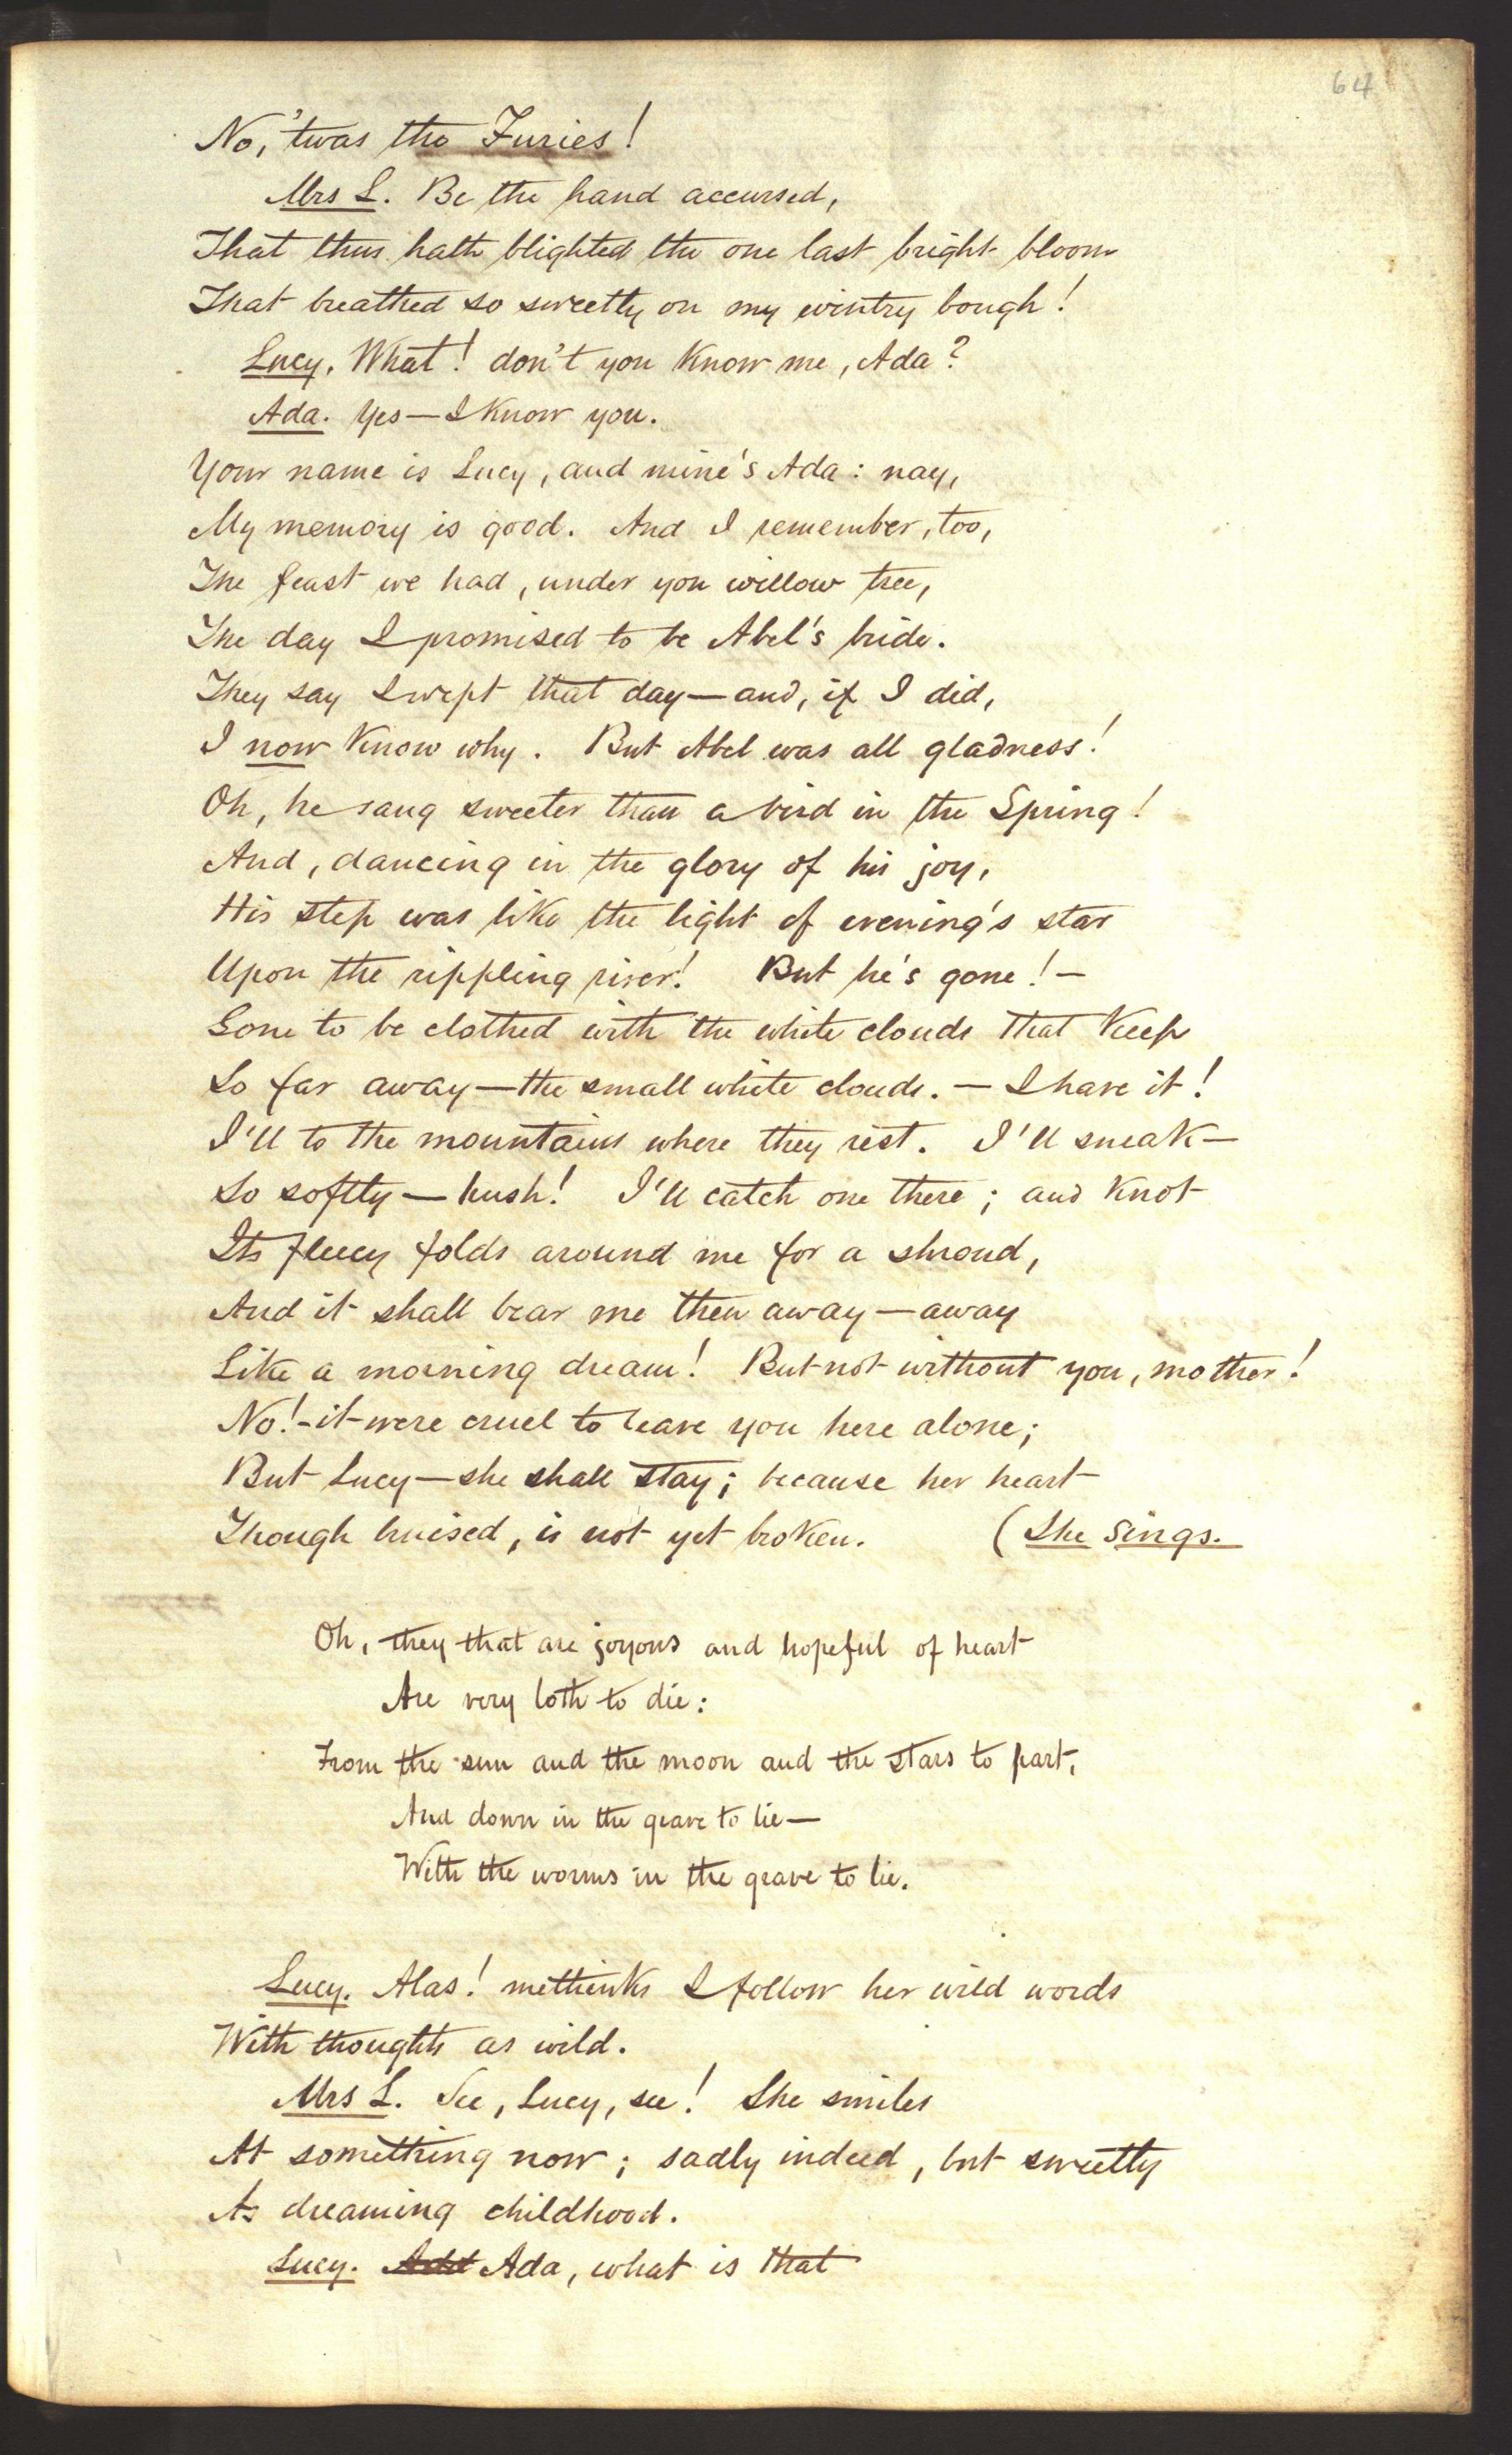 64
No, 'twas the Furies!
Mrs L. Be the hand accursed,
That thus hath blighted the one last bright bloom
That breathed so sweetly on my wintry bough!
Lucy. What! don't you know me, Ada?
Ada. Yes—I know you.
Your name is Lucy, and mine's Ada: nay,
My memory is good. And I remember, too,
The feast we had, under yon willow tree,
The day I promised to be Abel's bride.
They say I wept that day—and, if I did,
I now know why. But Abel was all gladness!
Oh, he sang sweeter than a bird in the Spring!
And, dancing in the glory of his joy,
His step was like the light of evening's star
Upon the rippling river! But he's gone!—
Gone to be clothed with the white clouds that keep
So far away—the small white clouds.—I have it!
I'll to the mountains where they rest. I'll sneak—
So softly—hush! I'll catch one there; and knot
Its fleecy folds around me for a shroud,
And it shall bear me then away—away
Like a morning dream! But not without you, mother!
No!-it were cruel to leave you here alone;
But Lucy—she shall stay; because her heart
Though bruised, is not yet broken. (She sings.
Oh, they that are joyous and hopeful of heart
Are very loth to die:
From the sun and the moon and the stars to part,
And down in the grave to lie—
With the worms in the grave to lie.
Lucy. Alas! methinks I follow her wild words
With thoughts as wild.
Mrs L. See, Lucy, see! She smiles
At something now; sadly indeed, but sweetly
As dreaming childhood.
Lucy. Ada, what is that